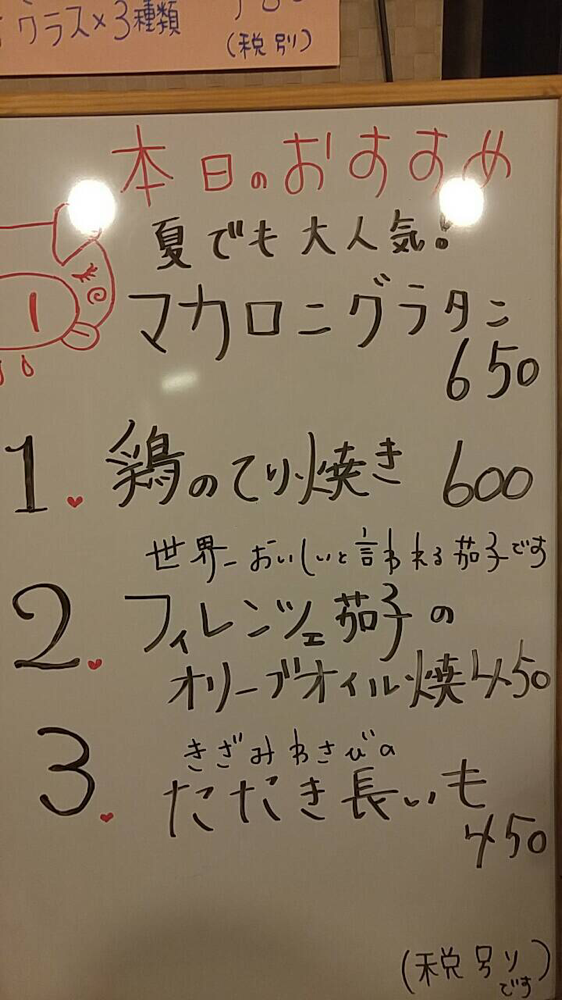 グラス×3種類
(税別)
本日のおすすめ
夏でも大人気!
マカロニグラタン
650
1. 鶏のてり焼き 600
世界一おいしいと言われる茄子です
2. フィレンツェ茄子の
オリーブオイル焼 450
3. きざみわさびの
たたき長いも
450
(税別りです)